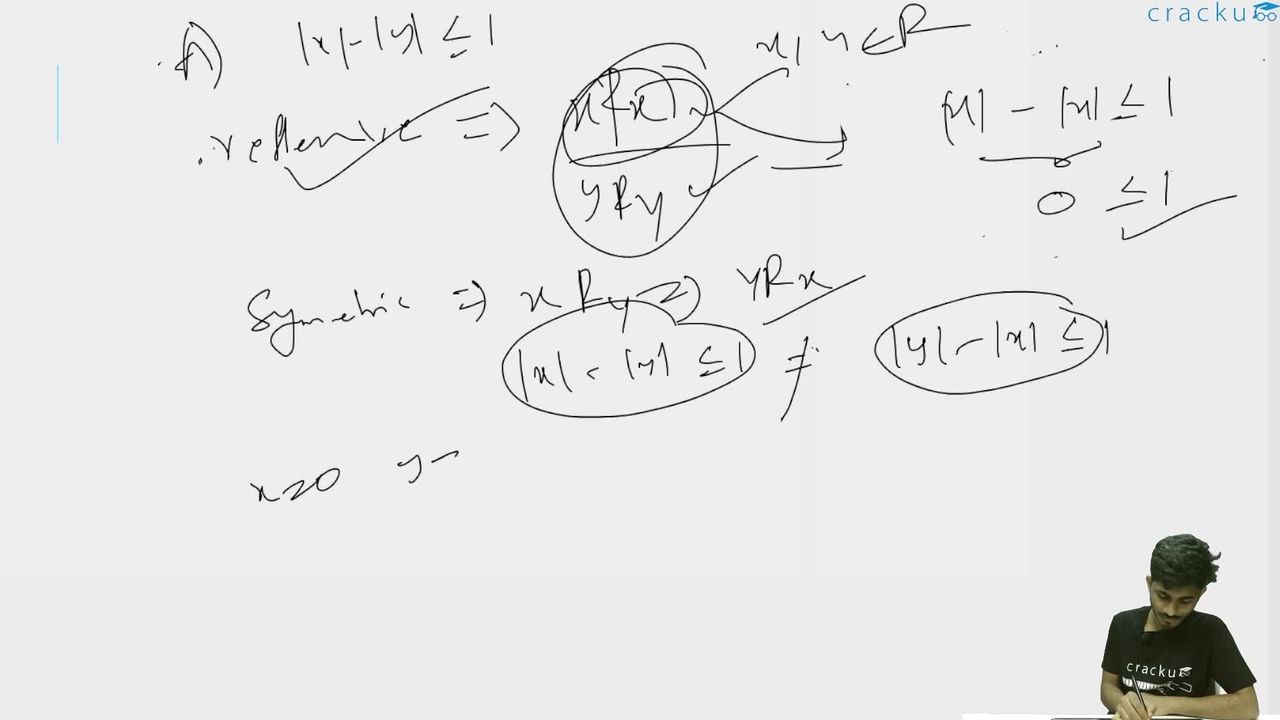 cracku
A) |x|-|y| ≤ 1
x, y ∈ R
reflexive ⇒ xRx
|x| - |x| ≤ 1
yRy
0 ≤ 1
Symmetric ⇒ xRy ⇒ yRx
|x| - |y| ≤ 1 ≠ |y| - |x| ≤ 1
x=0 y=
cracku